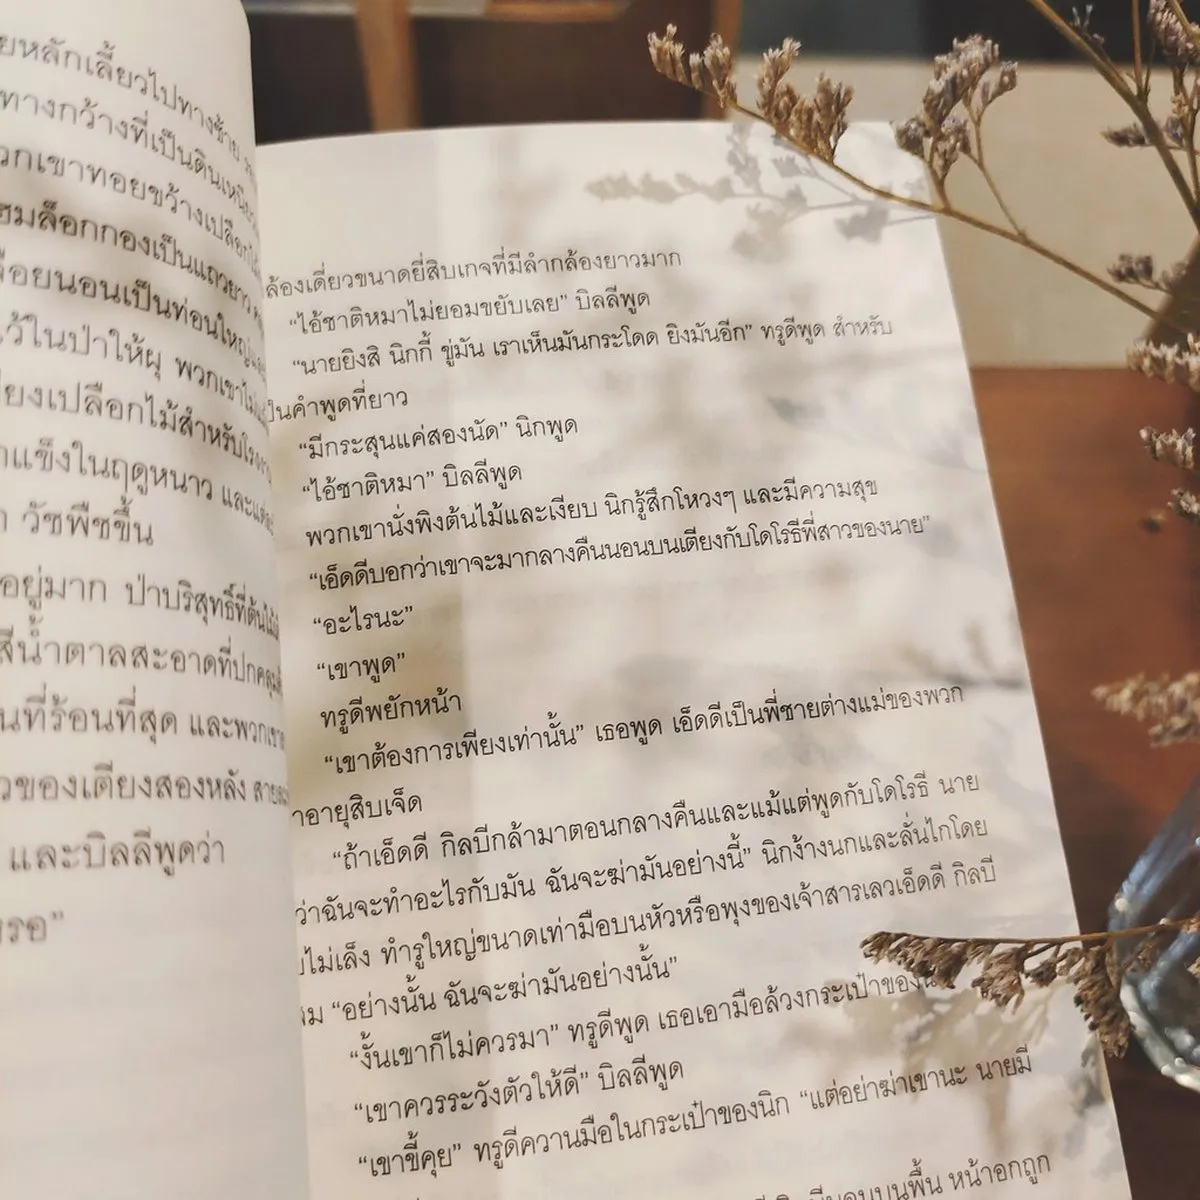 ยหลักเลี้ยวไปทางซ้าย
ทางกว้างที่เป็นดินเหนียว
วกเขาทอยขว้างเปลือกไม้
ฮมล็อกกองเป็นแถวยาว
ลื่อยนอนเป็นท่อนใหญ่
ว้ในป่าให้ผุ พวกเขาไม่
ยงเปลือกไม้สำหรับโรง
แข็งในฤดูหนาว และแต่ละ
วัชพืชขึ้น
อยู่มาก ป่าบริสุทธิ์ที่ต้นไม้
สีน้ำตาลสะอาดที่ปกคลุม
นที่ร้อนที่สุด และพวกเขา
วของเตียงสองหลัง
และบิลลีพูดว่า
รรอ”
ล้องเดี่ยวขนาดยี่สิบเกจที่มีลำกล้องยาวมาก
“ไอ้ชาติหมาไม่ยอมขยับเลย” บิลลีพูด
“นายยิงสิ นิกกี้ ขู่มัน เราเห็นมันกระโดด ยิงมันอีก” ทรูดีพูด สำหรับ
ป็นคำพูดที่ยาว
“มีกระสุนแค่สองนัด” นิกพูด
“ไอ้ชาติหมา” บิลลีพูด
พวกเขานั่งพิงต้นไม้และเงียบ นิกรู้สึกโหวงๆ และมีความสุข
“เอ็ดดีบอกว่าเขาจะมากลางคืนนอนบนเตียงกับโดโรธีพี่สาวของนาย”
“อะไรนะ”
“เขาพูด”
ทรูดีพยักหน้า
“เขาต้องการเพียงเท่านั้น” เธอพูด เอ็ดดีเป็นพี่ชายต่างแม่ของพวก
าอายุสิบเจ็ด
“ถ้าเอ็ดดี กิลบีกล้ามาตอนกลางคืนและแม้แต่พูดกับโดโรธี นาย
ว่าฉันจะทำอะไรกับมัน ฉันจะฆ่ามันอย่างนี้” นิกง้างนกและลั่นไกโดย
ไม่เล็ง ทำรูใหญ่ขนาดเท่ามือบนหัวหรือพุงของเจ้าสารเลวเอ็ดดี กิลบี
สม “อย่างนั้น ฉันจะฆ่ามันอย่างนั้น”
“งั้นเขาก็ไม่ควรมา” ทรูดีพูด เธอเอามือล้วงกระเป๋าของ
“เขาควรระวังตัวให้ดี” บิลลีพูด
“เขาขี้คุย” ทรูดีควานมือในกระเป๋าของนิก “แต่อย่าฆ่าเขานะ นายมี
บนพื้น หน้าอกถูก